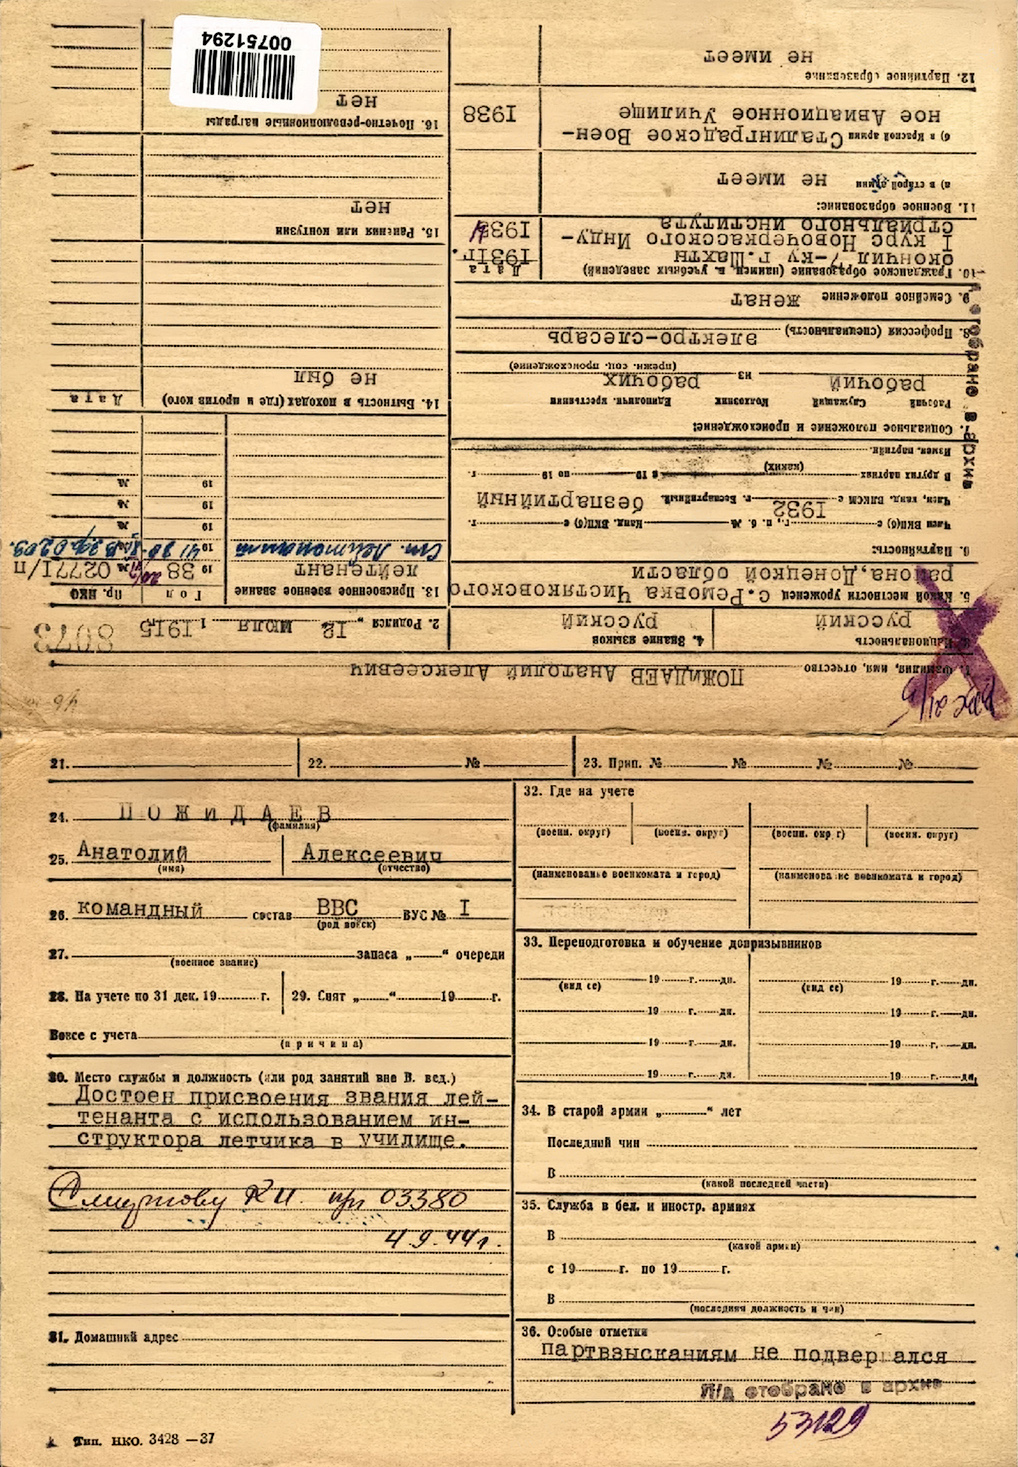 1. Фамилия, имя, отчество ПОЖИДАЕВ Анатолий Алексеевич
2. Родился „ 12 июля 1915
8073
3. Национальность русский
4. Знание языков русский
5. Какой местности уроженец С.Ремовка Чистяковского
района,Донецкой области
6. Партийность:
Член ВКП(б) с г., п. б. № Канд. ВКП(б) с г.
Член, канд. ВЛКСМ с 1932 г. Беспартийный. безпартийный
В других партиях (каких) с 19 по 19 г.
Измен. партийн.
7. Социальное положение и происхождение:
Рабочий Служащий Колхозник Единоличн. крестьянин
рабочий из рабочих
(прежн. соц. происхождение)
8. Профессия (специальность) электро-слесарь
9. Семейное положение женат
10. Гражданское образование (наимен. в. учебных заведений) Дата
окончил 7-ку г.Шахты 1931г.
I курс Новочеркасского Инду-
стриального института
11. Военное образование:
а) в старой армии не имеет
б) в Красной армии Сталинградское Воен-
ное Авиационное Училище 1938
12. Партийное образование
не имеет
13. Присвоение военное звание Год Пр. НКО
лейтенант 19 38 № 02771/п
Ст. Лейтенант 19 41
19 №
19 №
19 №
14. Бытность в походах (где и против кого) Дата
не был
15. Ранения или контузии
нет
16. Почетно-революционные награды
нет
00751294
21. 22. № 23. Прип. № № № №
24. ПОЖИДАЕВ
(фамилия)
25. Анатолий Алексеевич
(имя) (отчество)
26. командный состав ВВС ВУС № I
(род войск)
27. запаса „ “ очереди
(военное звание)
28. На учете по 31 дек. 19 г. 29. Снят „ “ 19 г.
Вовсе с учета
(причина)
30. Место службы и должность (или род занятий вне В. вед.)
Достоен присвоения звания лей-
тенанта с использованием ин-
структора летчика в училище.
Смирнову К.И. пр 03380
4.9.44г.
31. Домашний адрес
32. Где на учете
(военн. округ) (военн. округ) (военн. округ) (военн. округ)
(наименованье военкомата и город) (наименованье военкомата и город)
33. Переподготовка и обучение допризывников
19 г. дн. 19 г. дн.
(вид ее) (вид ее)
19 г. дн. 19 г. дн.
19 г. дн. 19 г. дн.
19 г. дн. 19 г. дн.
34. В старой армии „ “ лет
Последний чин
В
(какой последней части)
35. Служба в бел. и иностр. армиях
В
(какой армии)
с 19 г. по 19 г.
В
(последняя должность и чин)
36. Особые отметки
партвзысканиям не подвергался
Л/д отобрано в архив
53129
Тип. НКО. 3428—37